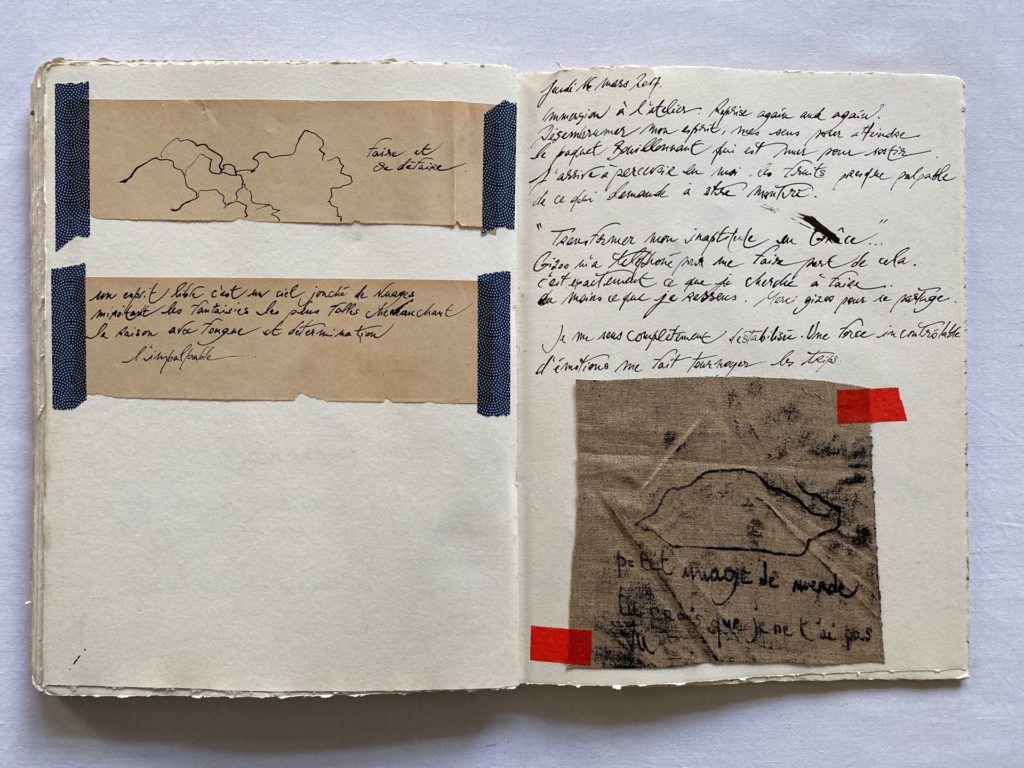 faire et
se défaire.
mon esprit libre c'est un ciel jonché de nuages
miroitant les fantaisies les plus folles chevauchant
la raison avec fougue et détermination
l'impalpable
Jeudi 16 mars 2017.
Immersion à l'atelier. Reprise again and again.
Désembrumer mon esprit, mes sens pour atteindre
le paquet Bouillonnant qui est mur pour sortir.
J'arrive à percevoir en moi les traits presque palpable
de ce qui demande à être montré.
"Transformer mon inaptitude en Grâce..."
Gizoo m'a téléphoné pour me faire part de cela.
c'est exactement ce que je cherche à faire.
du moins ce que je ressens. Merci gizoo pour ce partage.
Je me sens complètement déstabilisée. Une force incontrôlable
d'émotions me fait tournoyer les
petit nuage de merde
tu crois que je ne t'ai pas
vu